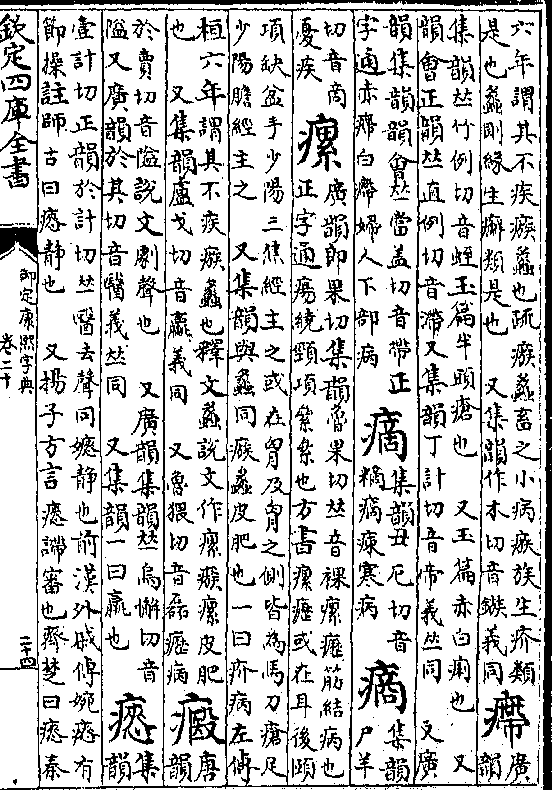 六年謂其不疾瘯蠡也疏瘯蠡畜之小病瘯族生疥類
是也蠡剛緣生癬類是也 又集韻作木切音鏃義同
㿃
廣
韻
集韻𠀤竹例切音蛭玉篇牛頭瘡也 又玉篇赤白痢也 又
韻會正韻𠀤直例切音滯又集韻丁計切音帝義𠀤同 又廣
韻集韻韻會𠀤當蓋切音帶正
字通赤㿃白㿃婦人下部病
集韻丑厄切音
寒病
集韻
尸羊
切音商
憂疾
瘰
廣韻郎果切集韻魯果切𠀤音裸瘰癧筋結病也
正字通瘍繞頸項纍纍也方書瘰癧或在耳後頤
項缺盆手少陽三焦經主之或在胷及胷之側皆為馬刀瘡足
少陽膽經主之 又集韻與蠡同瘯蠡皮肥也一曰疥病左傳
桓六年謂其不疾瘯蠡也釋文蠡說文作瘰瘯瘰皮肥
也 又集韻盧戈切音驘義同 又魯猥切音磊癧病
唐
韻
於賣切音隘說文劇聲也 又廣韻集韻𠀤烏懈切音
隘又廣韻於其切音醫義𠀤同 又集韻一曰羸也
瘱
集
韻
壹計切正韻於計切𠀤醫去聲同嫕靜也前漢外戚傳婉瘱有
節操註師古曰瘱靜也 又揚子方言瘱諦審也齊楚曰瘱秦
欽定四庫全書
御定康熙字典
卷二十
二十四